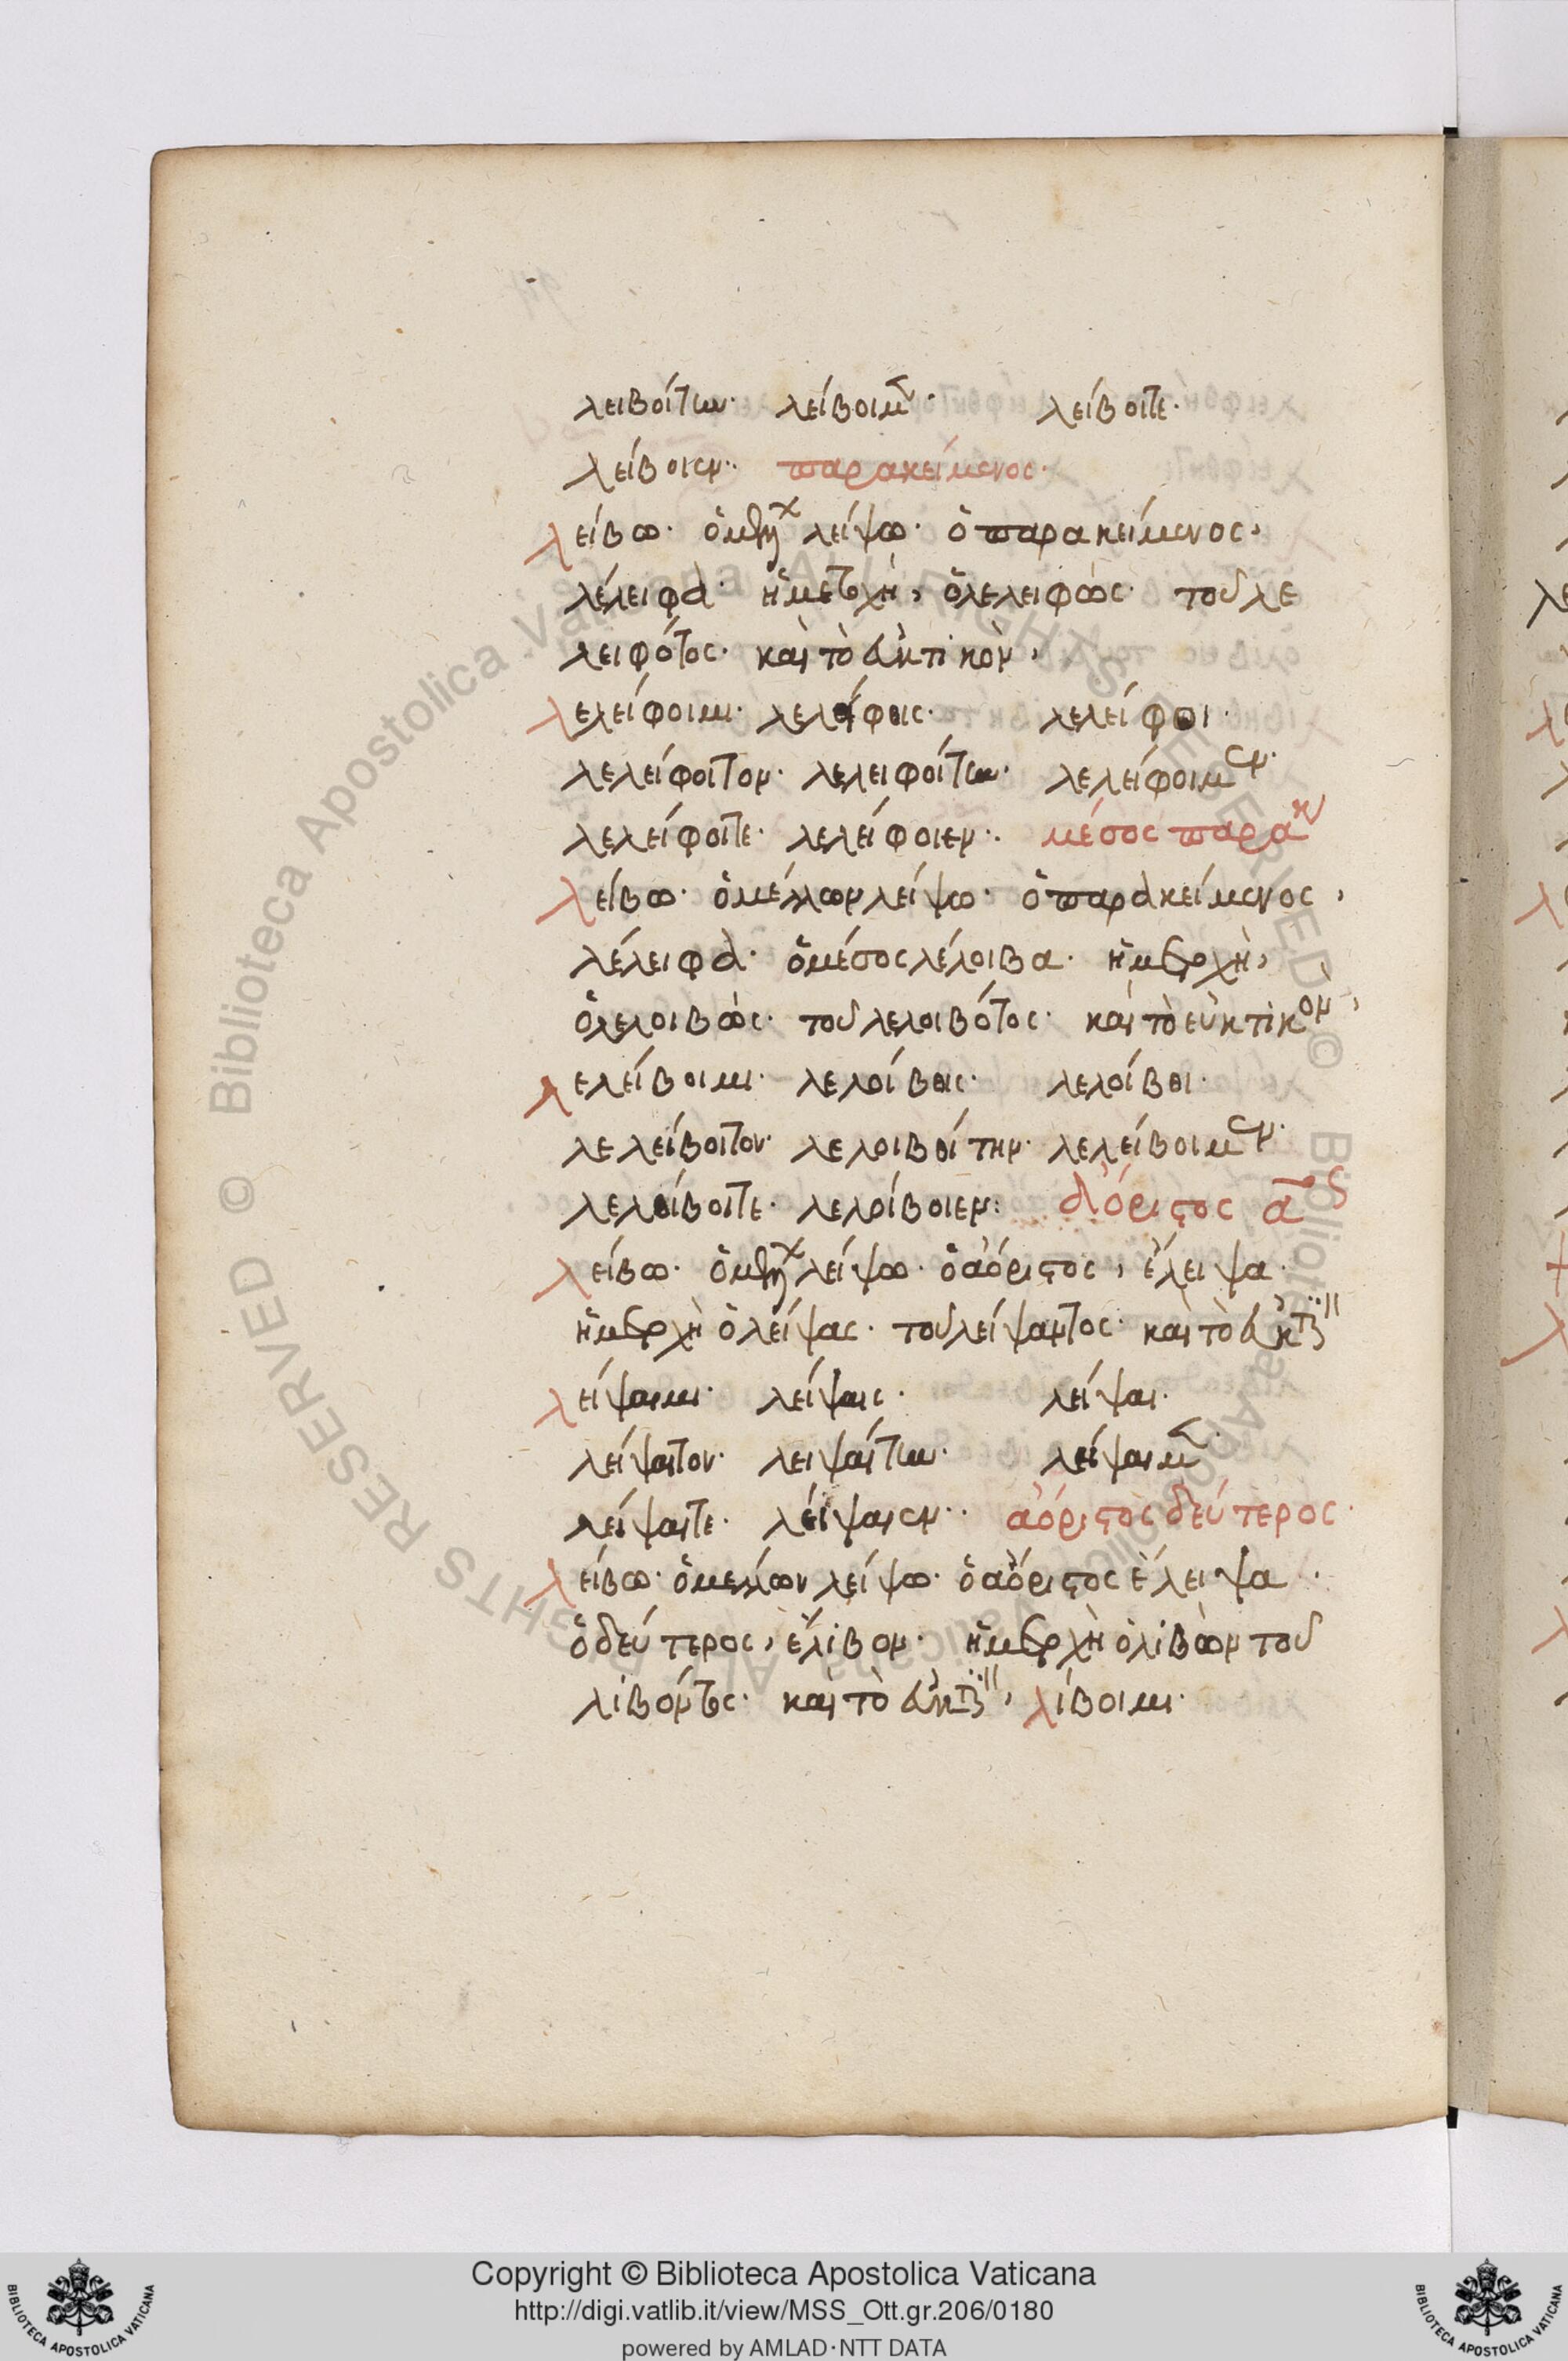 λειβοίτην· λείβοιμεν· λείβοιτε·
λείβοιεν·· παρακείμενος·
λείβω· ὁ μέλλων λείψω· ὁ παρακείμενος,
λέλειφα· ἡ μετοχὴ, ὁ λελειφὼς· τοῦ λε
λειφότος· καὶ τὸ εὐκτικὸν,
λελείφοιμι· λελείφοις· λελείφοι·
λελείφοιτον· λελειφοίτην· λελείφοιμεν·
λελείφοιτε· λελείφοιεν·· μέσος παρακ
λείβω· ὁ μέλλων λείψω· ὁ παρακείμενος,
λέλειφα· ὁ μέσος λέλοιβα· ἡ μετοχὴ,
ὁ λελοιβὼς· τοῦ λελοιβότος· καὶ τὸ εὐκτικὸν,
λελείβοιμι· λελοίβοις· λελοίβοι·
λελείβοιτον· λελοιβοίτην· λελείβοιμεν·
λελοίβοιτε· λελοίβοιεν: ἀόριστος αος
λείβω· ὁ μέλλων λείψω· ὁ ἀόριστος, ἔλειψα·
ἡ μετοχὴ ὁ λείψας· τοῦ λείψαντος· καὶ τὸ εὐκτ
λείψαιμι· λείψαις· λείψαι·
λείψαιτον· λειψαίτην· λείψαιμεν·
λείψαιτε· λείψαιεν·· ἀόριστος δεύτερος·
λείβω· ὁ μέλλων λείψω· ὁ ἀόριστος ἔλειψα·
ὁ δεύτερος, ἔλιβον· ἡ μετοχὴ ὁ λιβὼν τοῦ
λιβόντος· καὶ τὸ εὐκτ, λίβοιμι·
Copyright © Biblioteca Apostolica Vaticana
http://digi.vatlib.it/view/MSS_Ott.gr.206/0180
powered by AMLAD·NTT DATA